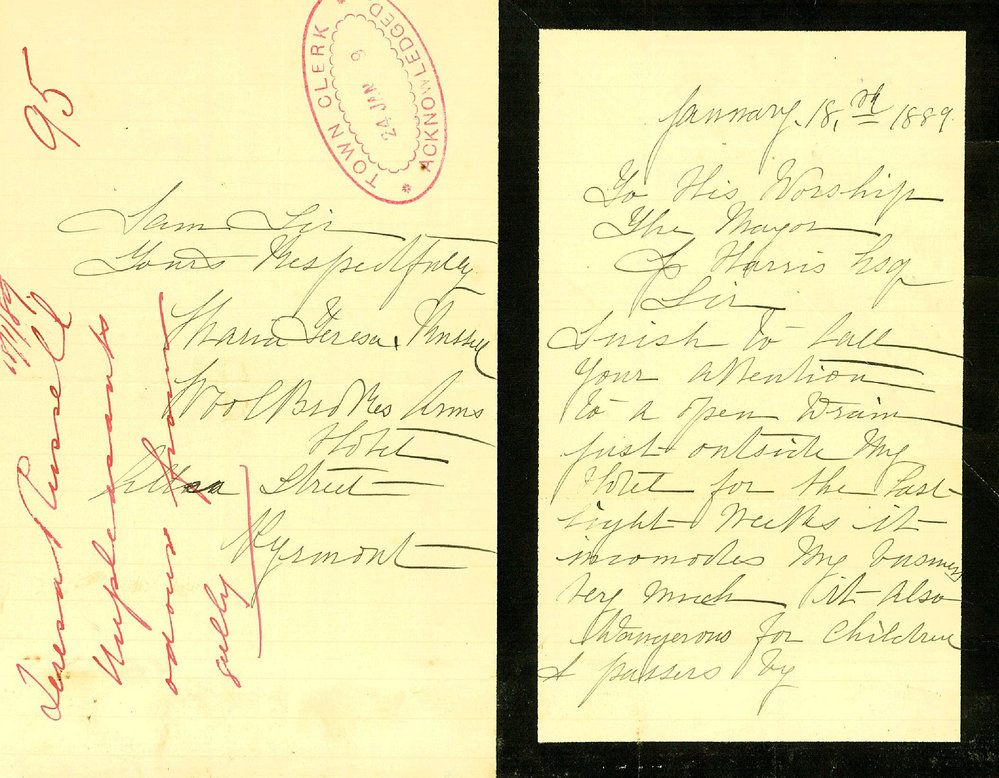 January. 18,th 1889.
To His Worship
The Mayor
Harris Esq
Sir
I wish to call
Your attention
to a open Drain
just outside My
Hotel for the Last
Eight Weeks it
incomodes My business
very much it also
Dangerous for Children
& passers by
I am Sir
Yours Respectfully
Maria Teresa. Russell
Wool Brokes Arms
Hotel
Street
Pyrmont
TOWN CLERK
24 JAN 9
ACKNOWLEDGED
95
Teresa Russell
18/1/89
Unpleasant
odour from
gully